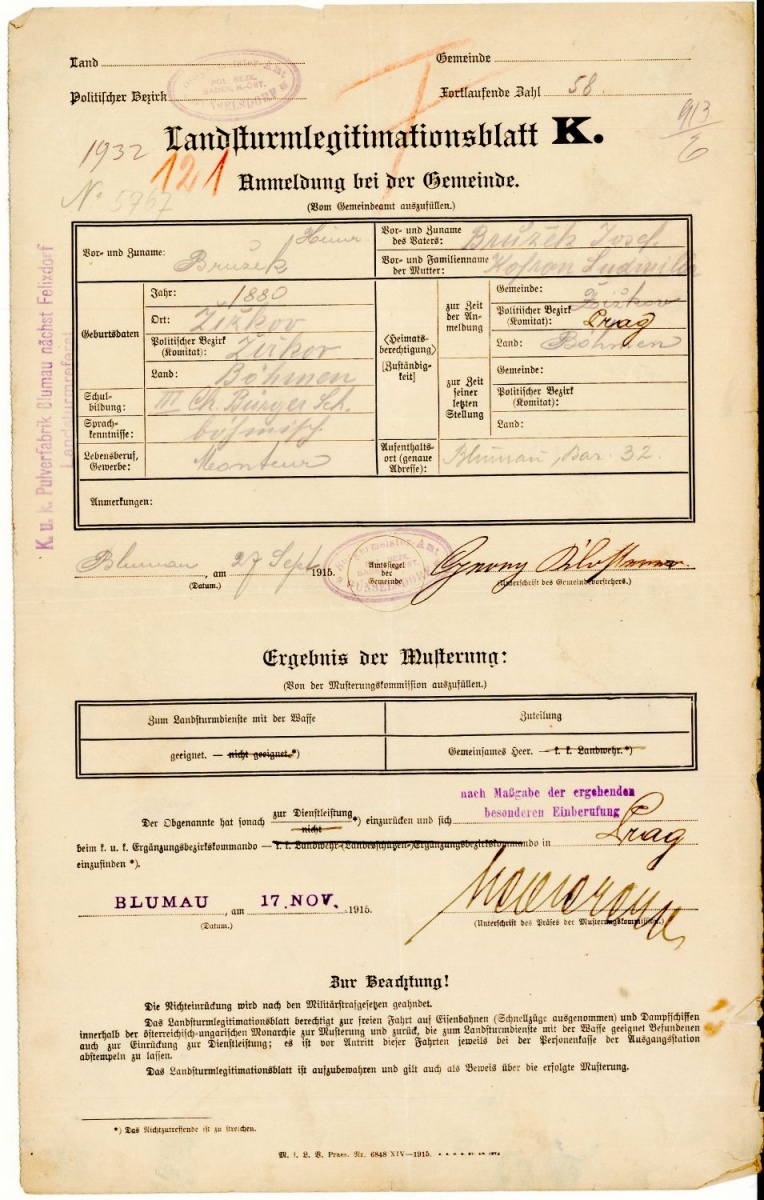 Land
Gemeinde
Bürgermeister-Amt
POL. BEZ.
BADEN, N.-ÖST.
Politischer Bezirk
Fortlaufende Zahl 58.
1932
913
Landsturmlegitimationsblatt K.
121
Nº 5767
Anmeldung bei der Gemeinde.
(Vom Gemeindeamt auszufüllen.)
K. u. k. Pulverfabrik Blumau nächst Felixdorf
Landsturmreferat
Vor- und Zuname: Bružek Heinr.
Vor- und Zuname des Vaters: Bružek Josef
Vor- und Familienname der Mutter: Ludmila
Geburtsdaten
Jahr: 1880
Ort: Žižkov
Politischer Bezirk (Komitat): Žižkov
Land: Böhmen
(Heimatsberechtigung) [Zuständigkeit]
zur Zeit der Anmeldung
Gemeinde: Žižkov
Politischer Bezirk (Komitat): Prag
Land: Böhmen
zur Zeit seiner letzten Stellung
Gemeinde:
Politischer Bezirk (Komitat):
Land:
Schulbildung: III Bürger Sch.
Sprachkenntnisse: böhmisch
Lebensberuf, Gewerbe: Monteur
Aufenthaltsort (genaue Adresse): Blumau, Bar. 32.
Anmerkungen:
Blumau, am 27 Sept 1915.
(Datum.)
Bürgermeister-Amt
Amtssiegel der Gemeinde
Georg
(Unterschrift des Gemeindevorstehers.)
Ergebnis der Musterung:
(Von der Musterungskommission auszufüllen.)
Zum Landsturmdienste mit der Waffe
Zuteilung
geeignet. — nicht geeignet.*)
Gemeinsames Heer. — k. k. Landwehr.*)
nach Maßgabe der ergehenden
besonderen Einberufung
Der Obgenannte hat sonach zur Dienstleistung nicht *) einzurücken und sich
beim k. u. k. Ergänzungsbezirkskommando — k. k. Landwehr-(Landesschützen-)Ergänzungsbezirkskommando in Prag
einzufinden *).
BLUMAU, am 17. NOV. 1915.
(Datum.)
(Unterschrift des Präses der Musterungskommission.)
Zur Beachtung!
Die Nichteinrückung wird nach den Militärstrafgesetzen geahndet.
Das Landsturmlegitimationsblatt berechtigt zur freien Fahrt auf Eisenbahnen (Schnellzüge ausgenommen) und Dampfschiffen
innerhalb der österreichisch-ungarischen Monarchie zur Musterung und zurück, die zum Landsturmdienste mit der Waffe geeignet Befundenen
auch zur Einrückung zur Dienstleistung; es ist vor Antritt dieser Fahrten jeweils bei der Personenkasse der Ausgangsstation
abstempeln zu lassen.
Das Landsturmlegitimationsblatt ist aufzubewahren und gilt auch als Beweis über die erfolgte Musterung.
*) Das Nichtzutreffende ist zu streichen.
M. f. L. V. Praes. Nr. 6848 XIV—1915.